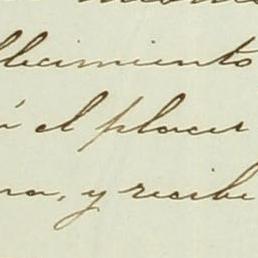 llecimiento
á el placer
na, y recibe